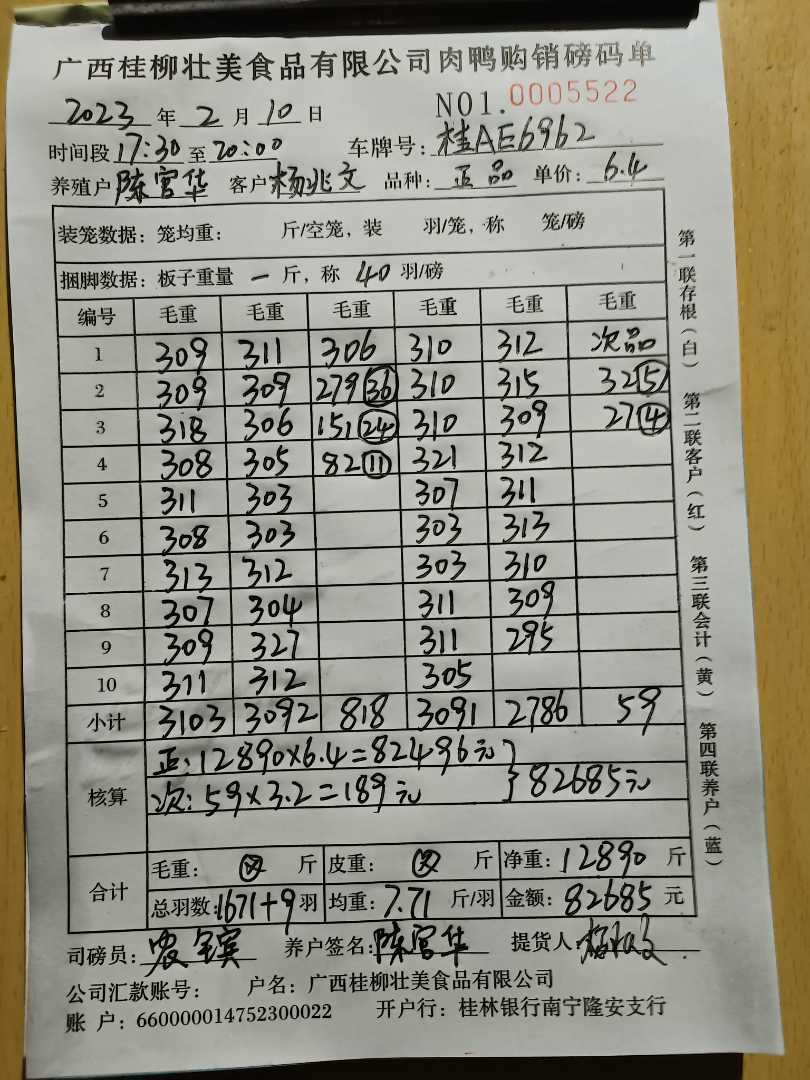 广西桂柳壮美食品有限公司肉鸭购销磅码单
2023年2月10日 NO1.0005522
时间段17:30至20:00 车牌号:桂AE6962
养殖户陈官华 客户杨兆文 品种:正品 单价:6.4
装笼数据:笼均重: 斤/空笼,装 羽/笼,称 笼/磅
捆脚数据:板子重量 一 斤,称 40 羽/磅
编号 毛重 毛重 毛重 毛重 毛重 毛重
1 309 311 306 310 312 次品
2 309 309 279(36) 310 315 32(5)
3 318 306 151(24) 310 309 27(4)
4 308 305 82(11) 321 312
5 311 303 307 311
6 308 303 303 313
7 313 312 303 310
8 307 304 311 309
9 309 327 311 295
10 311 312 305
小计 3103 3092 818 3091 2786 59
核算 正:12890×6.4=82496元
次:59×3.2=189元 }82685元
合计 毛重: 斤 皮重: 斤 净重:12890斤
总羽数:1671+9羽 均重:7.71斤/羽 金额:82685元
司磅员: 养户签名:陈官华 提货人:
公司汇款账号: 户名:广西桂柳壮美食品有限公司
账 户:660000014752300022 开户行:桂林银行南宁隆安支行
第一联存根(白) 第二联客户(红) 第三联会计(黄) 第四联养户(蓝)